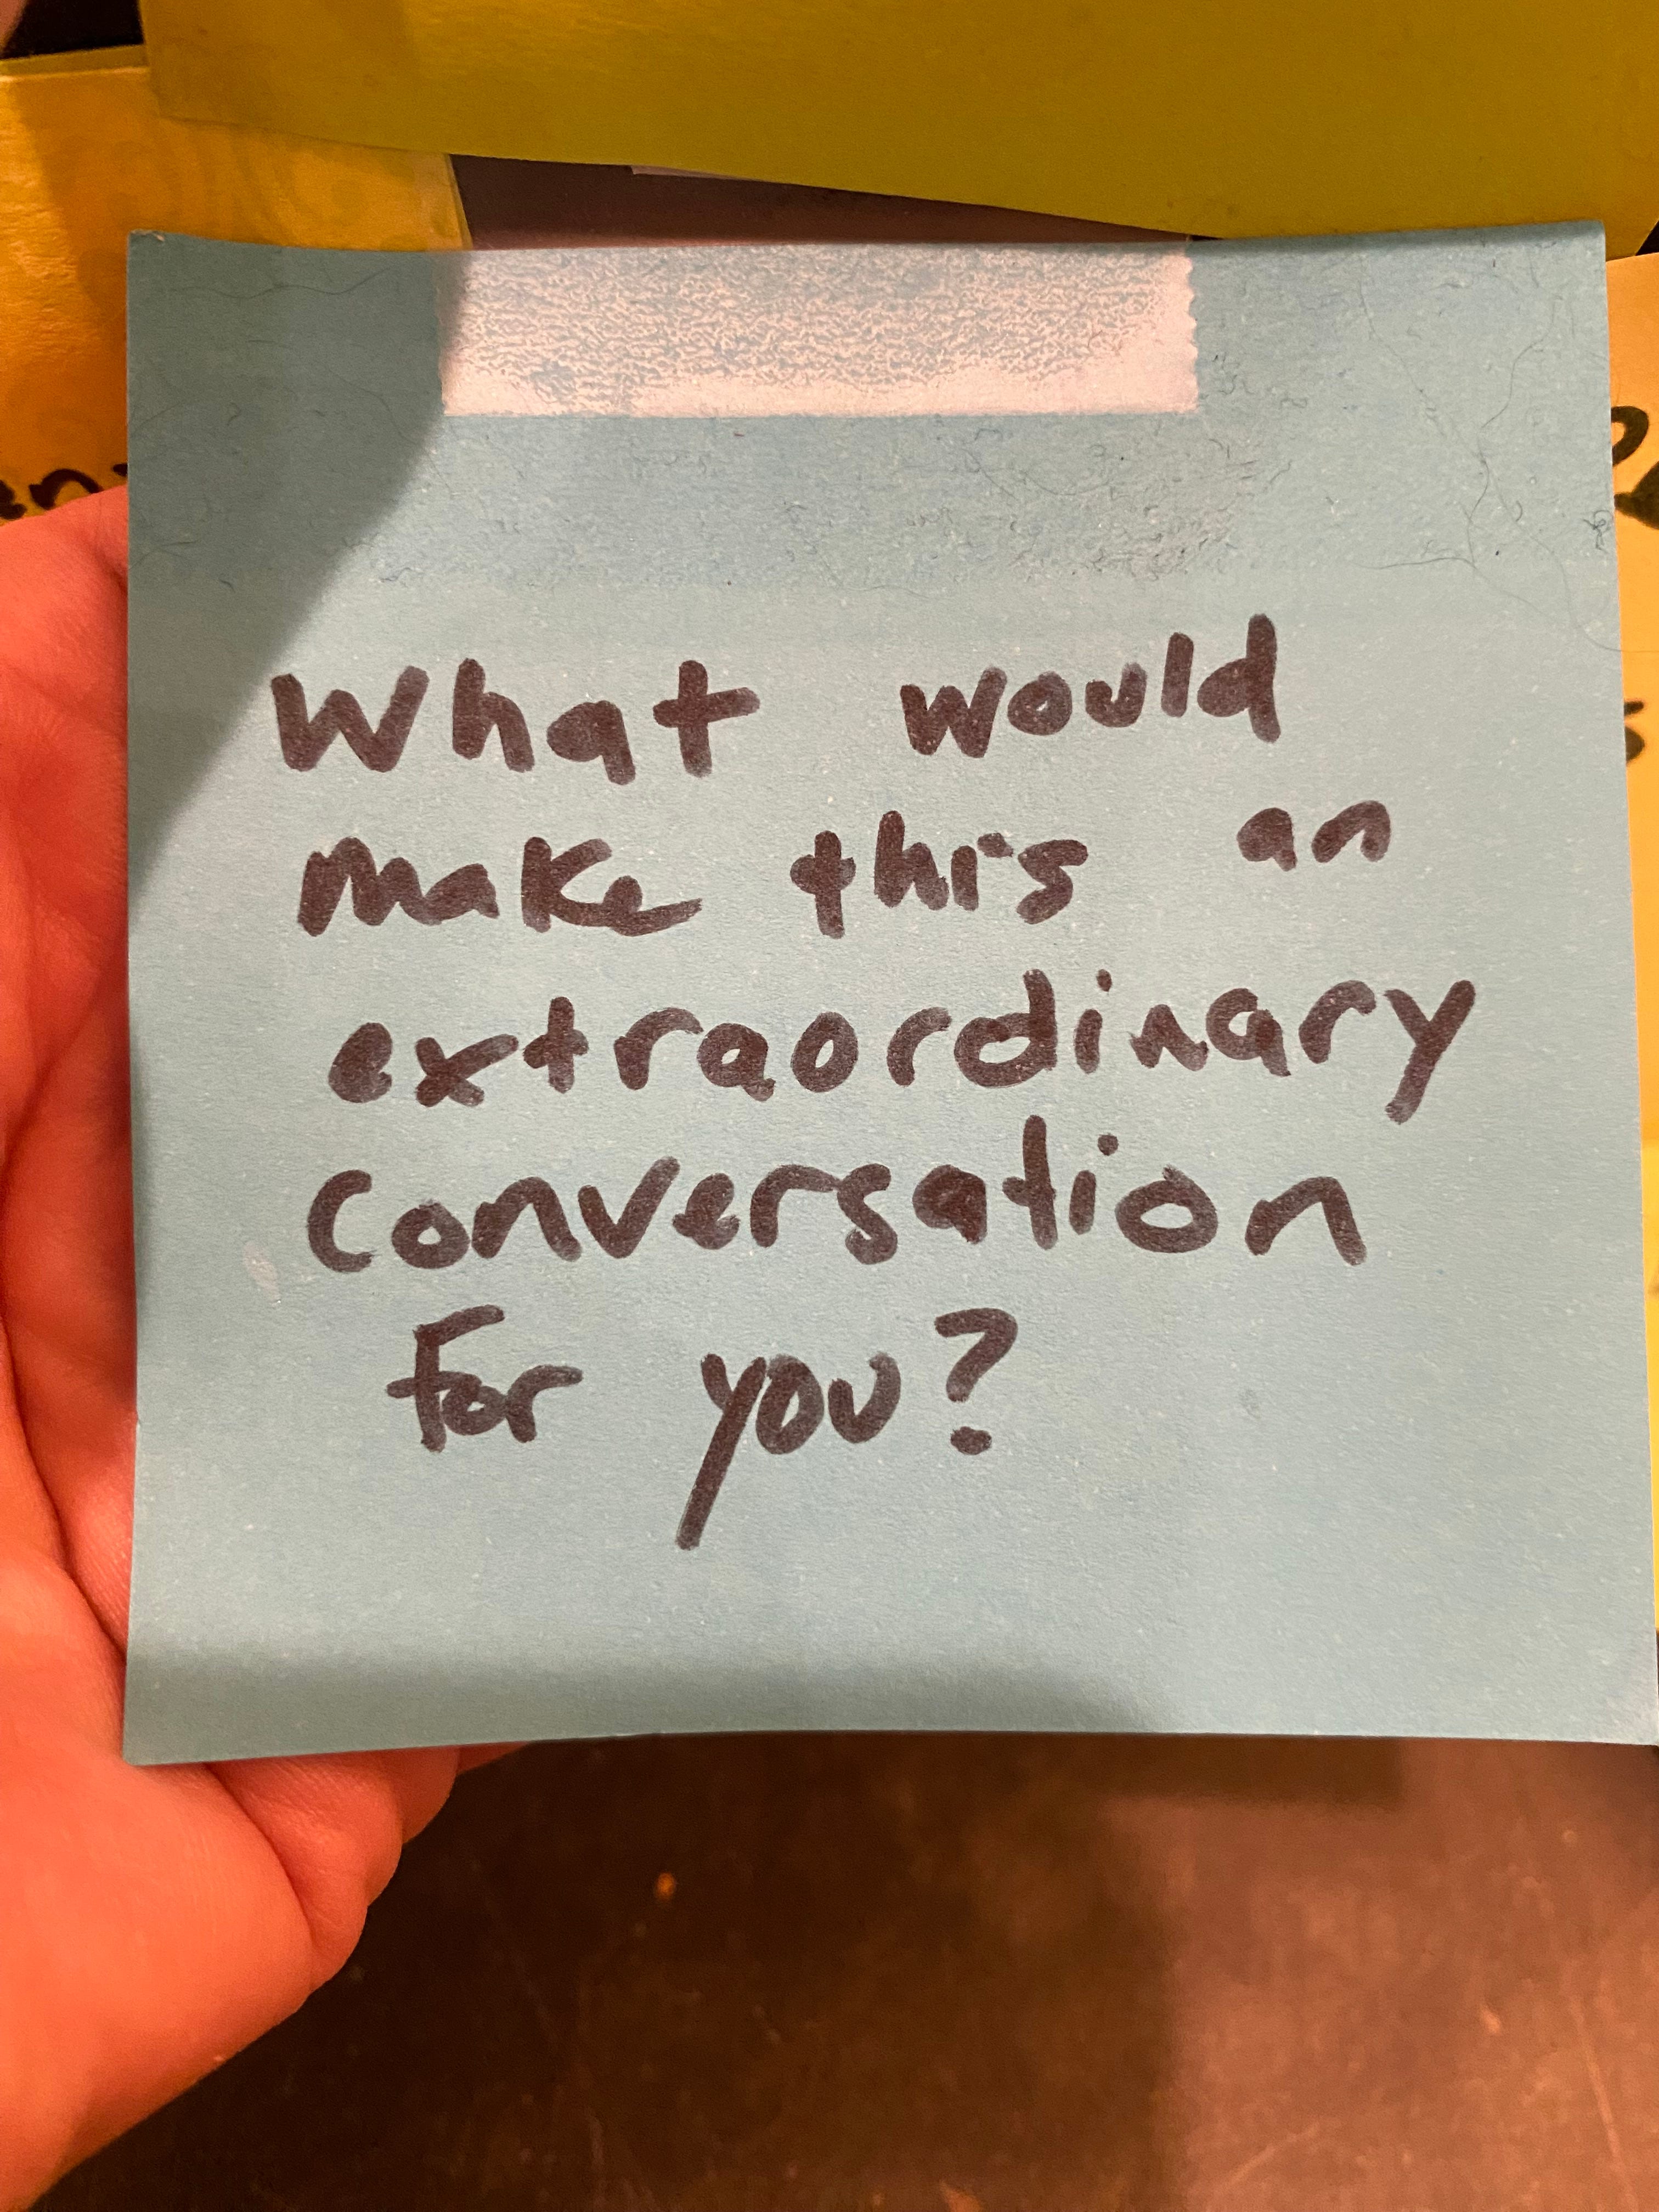 What would
make this an
extraordinary
conversation
for you?